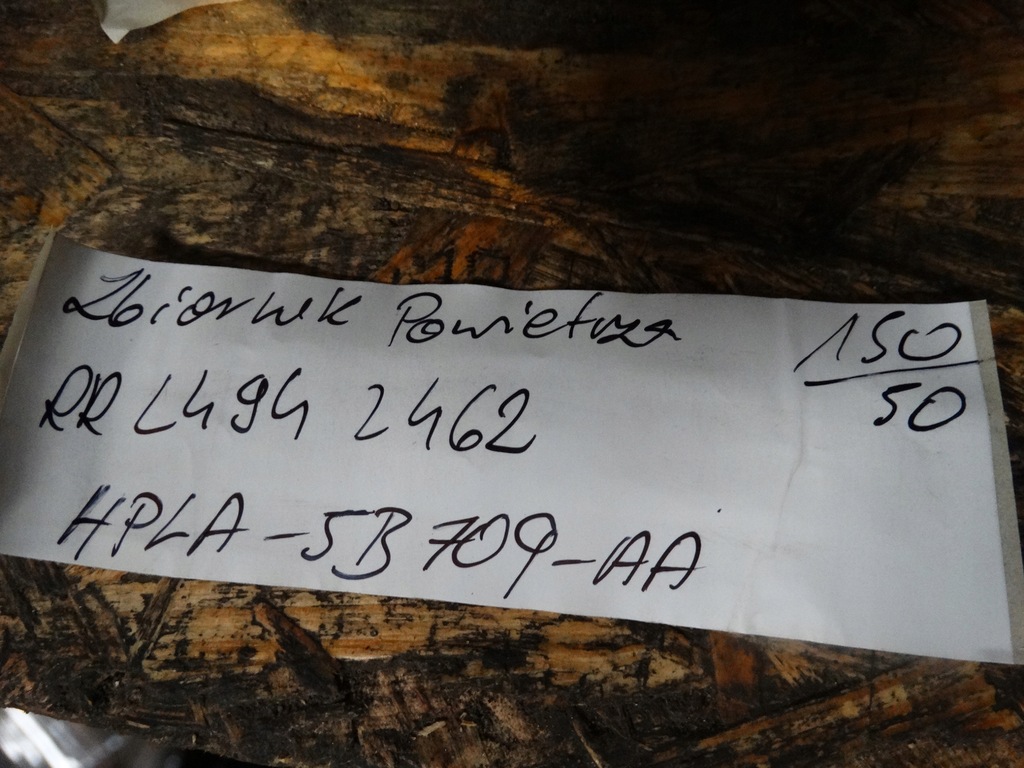 Zbiornik Powietrza 150
50
RR L494 2462
HPLA-5B709-AA